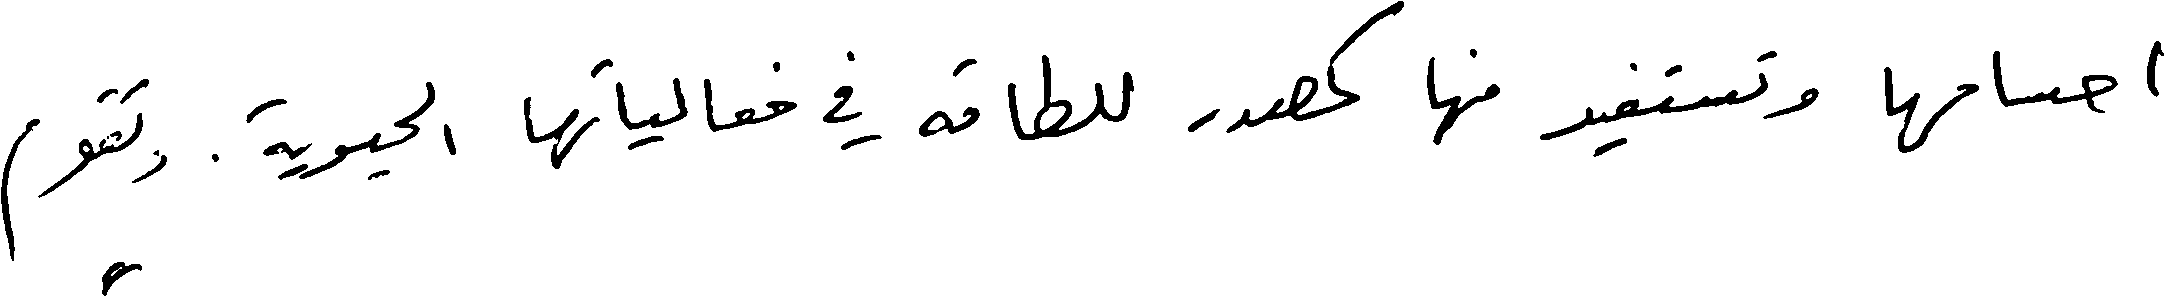 اجسامها وتستفيد منها كمصدر للطاقه في فعالياتها الحيوية . وتقوم